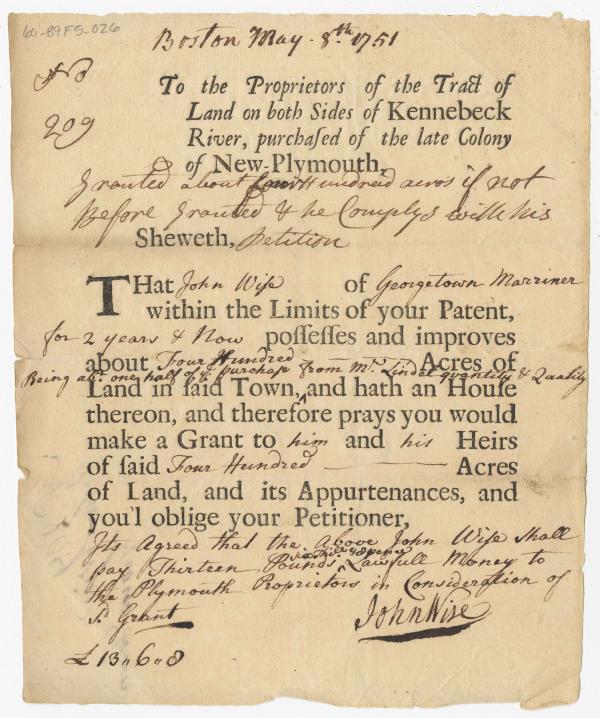 60-89FS-026
Boston May 8.th 1751
No
209
To the Proprietors of the Tract of
Land on both Sides of Kennebeck
River, purchaſed of the late Colony
of New-Plymouth,
Granted about four Hundred acres if not
Before Granted & he Complys with his
Sheweth, Petition
THat John Wiſe of Georgetown Marriner
within the Limits of your Patent,
for 2 years & Now poſſeſſes and improves
about Four Hundred Acres of
Being abt. one half of ye purchaſe from Mr. Lindel quantity & Quality
Land in ſaid Town, and hath an Houſe
thereon, and therefore prays you would
make a Grant to him and his Heirs
of ſaid Four Hundred Acres
of Land, and its Appurtenances, and
you'l oblige your Petitioner,
Its Agreed that the Above John Wiſe ſhall
six Shills & 8 pence
pay Thirteen Pounds ^ Lawfull Money to
the Plymouth Proprietors in Conſideration of
Sd. Grant
John Wise
£ 13 " 6 " 8